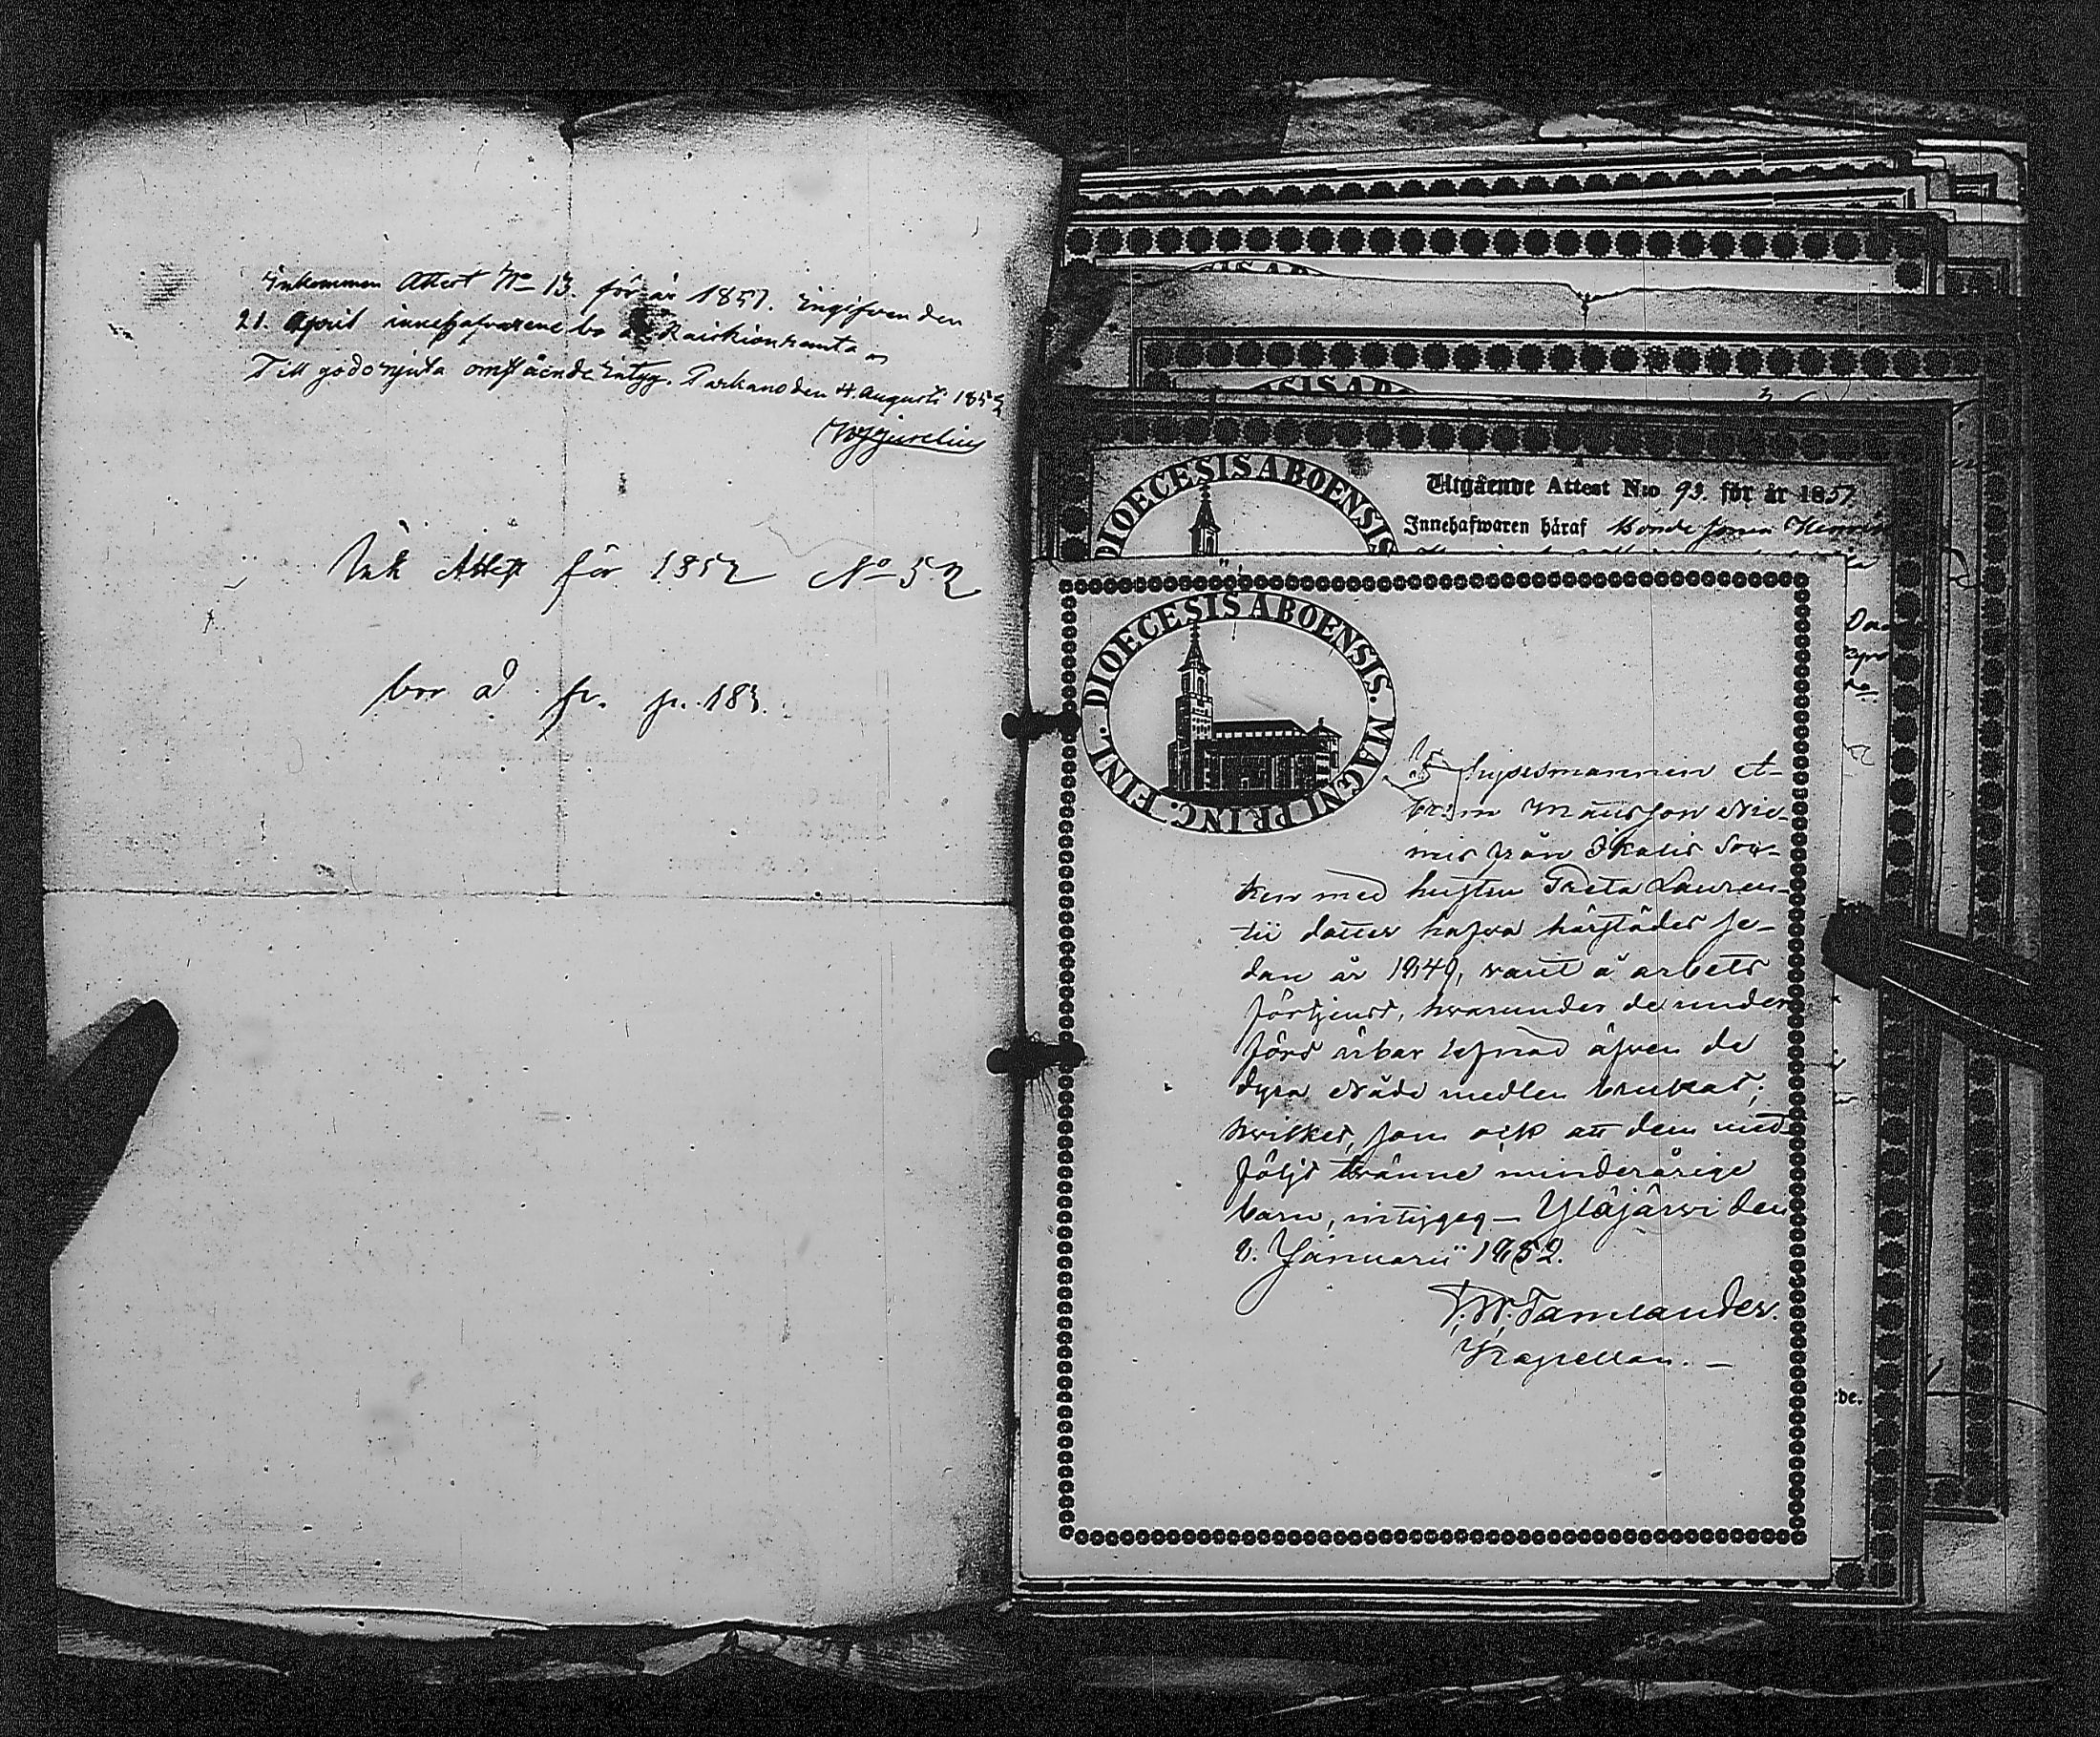 Inkommen Attest No 13. för år 1851. Ingifven den
21. April innehafvarene bo å Raiskionranta
Till godo njuta omstående intyg. Parkano den 4. Augusti 1852
Ink Attest för 1852 No 52
bor å fr. p. 183.
DIOECESIS ABOENSIS
Utgående Attest N:o 93. för år 1851.
Innehafwaren häraf Bonde
DIOECESIS ABOENSIS. MAGNI PRINC. FINL.
mannen A-
Mattsson Nie-
mis från Ikalis Soc-
ken med hustru Greta Lauren-
tii dotter hafva härstädes se-
dan år 1849, varit å arbets
förtjenst, hvarunder de under
förd ärbar lefnad äfven de
dyra Nådemedlen brukat;
hvilket, som ock att dem med
följt tvänne minderårige
barn, intygeg — Ylöjärvi den
8. Januarii 1852.
Tamlander.
Kapellan. —